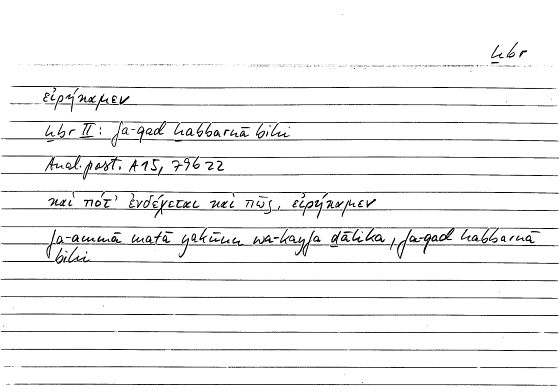 ḫbr
εἰρήκαμεν
ḫbr II: fa-qad ḫabbarnā bihi
Anal. post. A 15, 79b22
καὶ πότ' ἐνδέχεται καὶ πῶς, εἰρήκαμεν
fa-ammā matā yakūnu wa-kayfa ḏālika, fa-qad ḫabbarnā
bihi